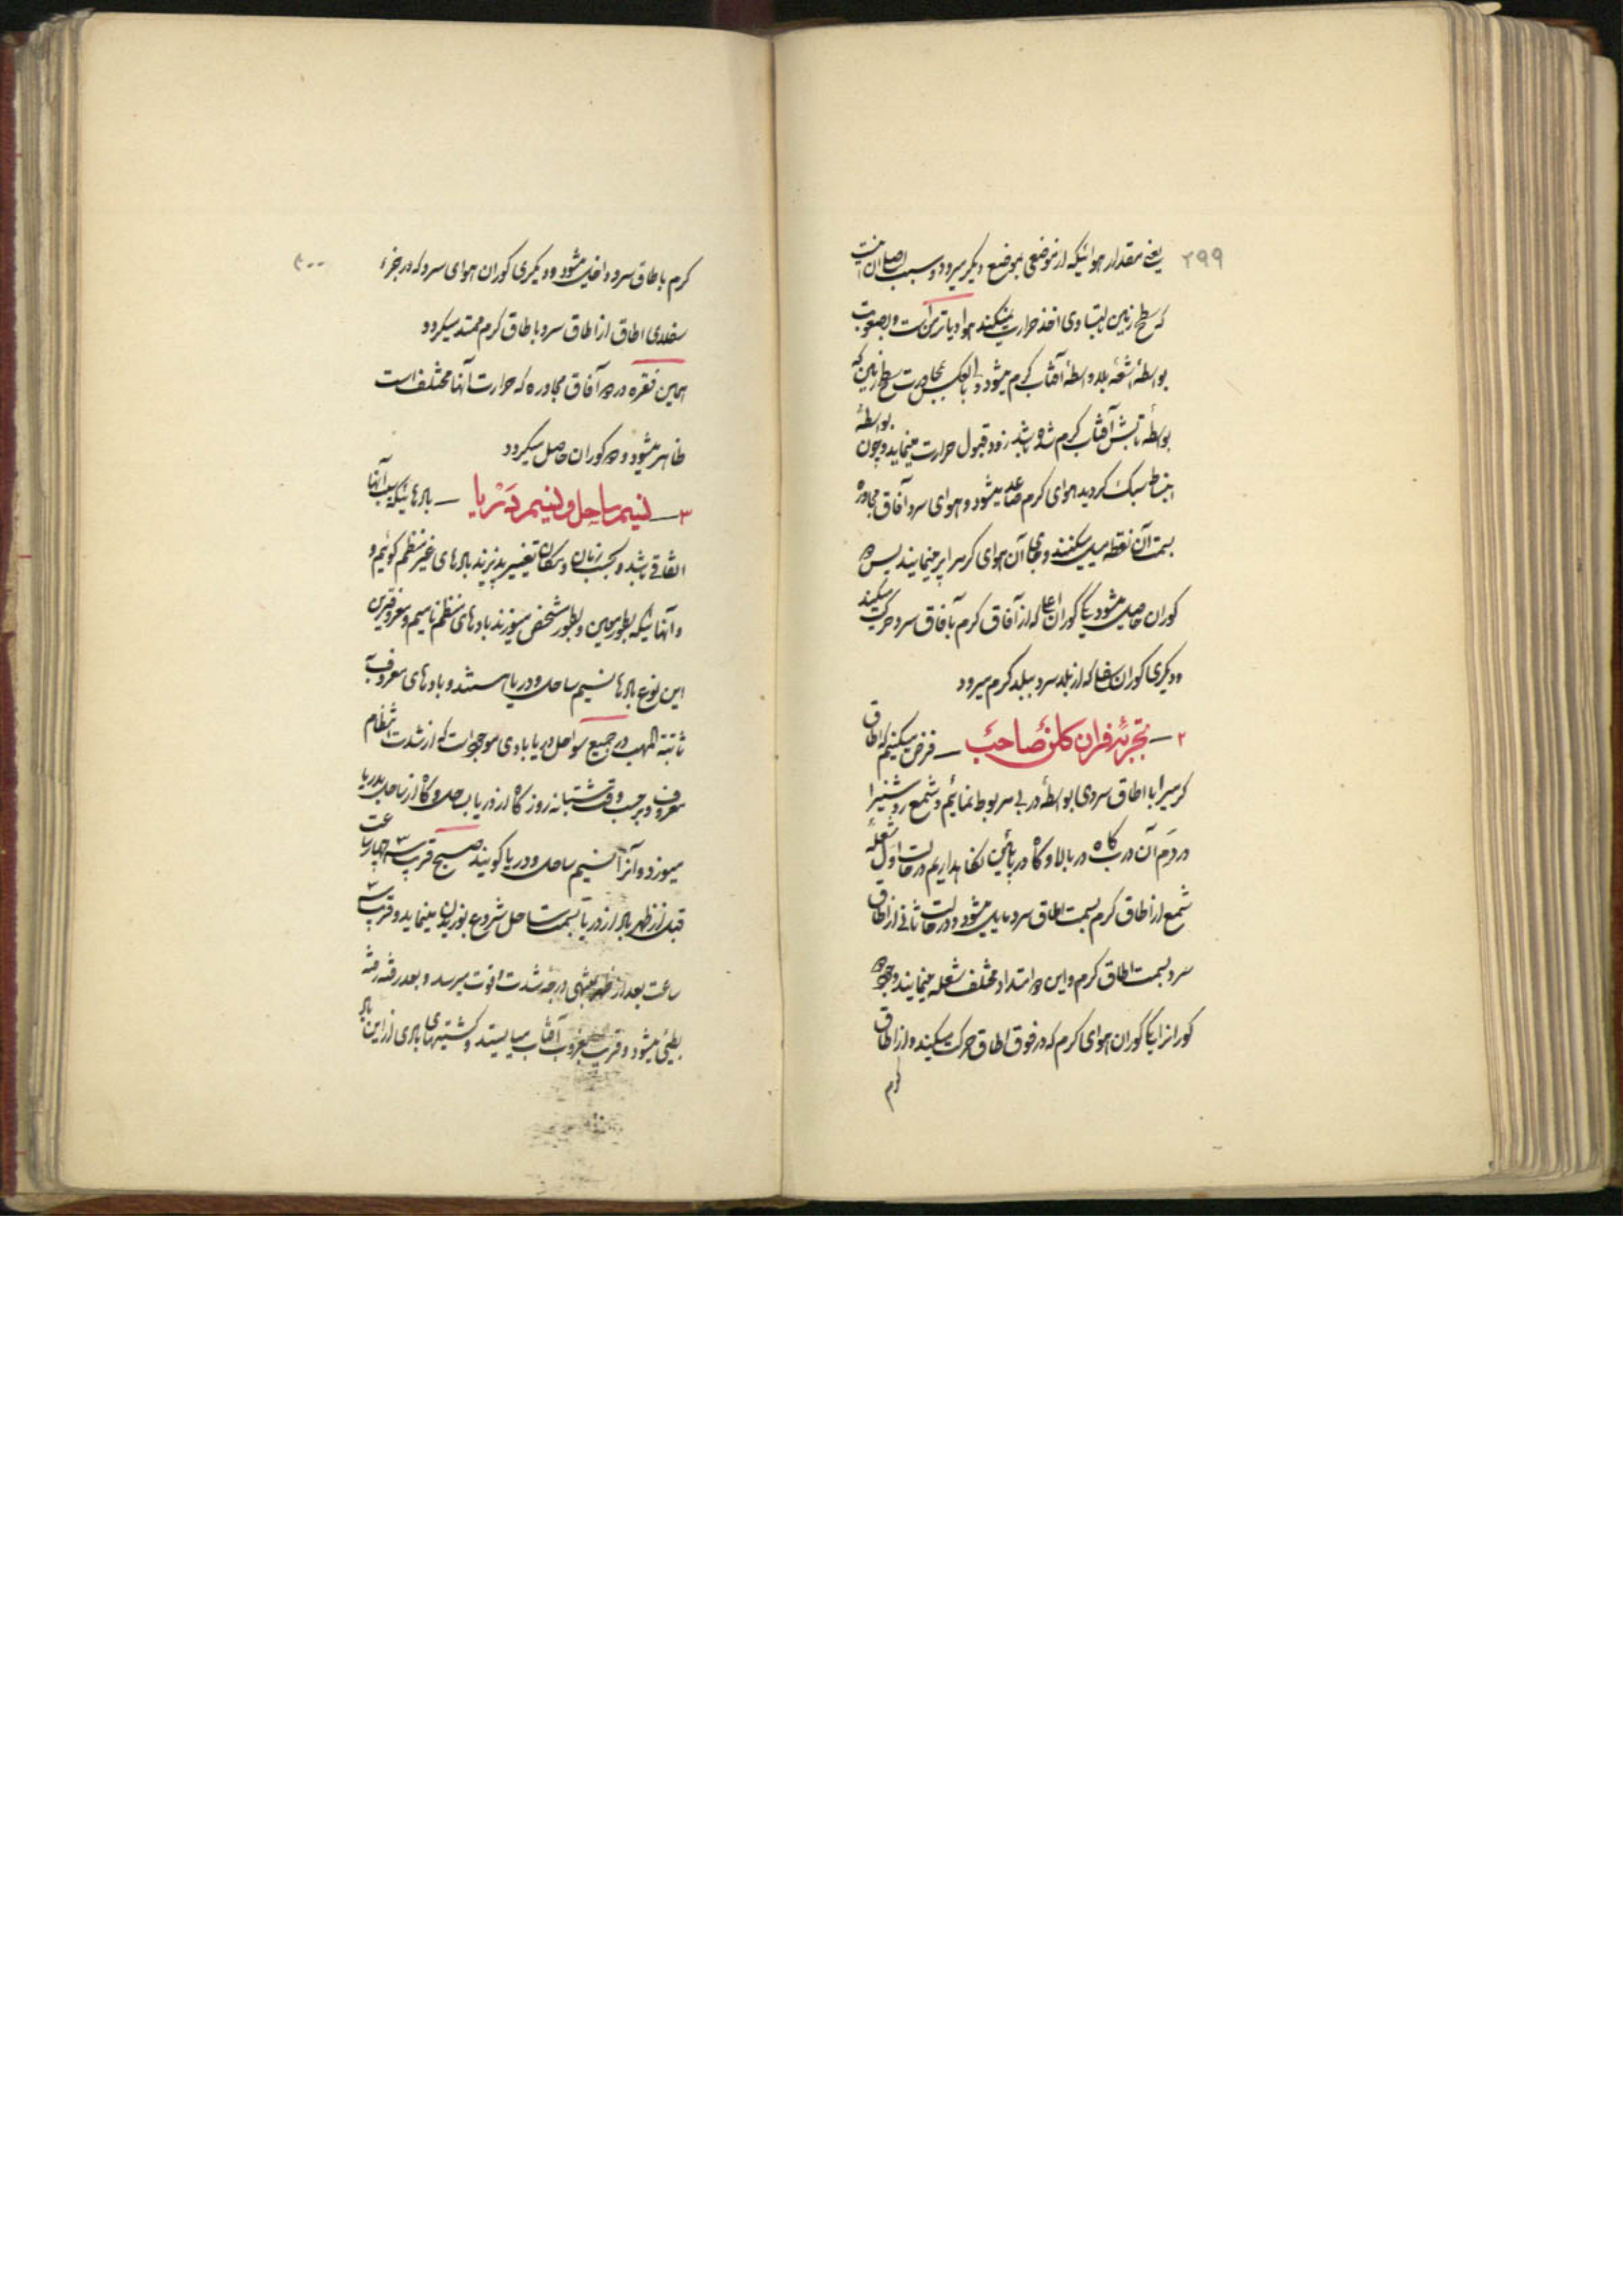 ۲۹۹
یعنی مقدار هوائیکه از موضعی بموضع دیگر میرود و سبب اصلی آن اینست
که سطح زمین بتساوی اخذ حرارت نمیکند هوا دیاترمن است و بصعوبت
بواسطهٔ اشعهٔ بلاواسطهٔ آفتاب گرم میشود و بالعکس بمجاورت سطح زمین که
بواسطهٔ تابش آفتاب گرم شده باشد زود قبول حرارت مینماید و چون بواسطهٔ
انبساط سبک گردید هوای گرم صاعد میشود و هوای سرد آفاق مجاوره
بسمت آن نقطه میل میکنند و جای آن هوای گرمرا پر مینمایند پس دو
کوران حاصل میشود یکی کوران اعلی که از آفاق گرم بآفاق سرد حرکت میکند
و دیگری کوران سفلی که از بلد سرد ببلد گرم میرود
۲ — تجربهٔ فران کلن صاحب — فرض میکنیم که اطاق
گرمیرا با اطاق سردی بواسطهٔ دربی مربوط نمائیم و شمع روشنیرا
در دم آن درب گاه در بالا و گاه در پائین نگاهداریم در حالت اول شعلهٔ
شمع از اطاق گرم بسمت اطاق سرد مایل میشود و در حالت ثانی از اطاق
سرد بسمت اطاق گرم و این دو امتداد مختلف شعله مینمایند وجود دو
کورانرا یکی کوران هوای گرم که در فوق اطاق حرکت میکند و از اطاق
گرم
۳۰۰
گرم باطاق سرد داخل میشود و دیگری کوران هوای سرد که در جزء
سفلای اطاق از اطاق سرد باطاق گرم ممتد میگردد
همین فقره در دو آفاق مجاوره که حرارت آنها مختلف است
ظاهر میشود و دو کوران حاصل میگردد
۳ — نسیم ساحل و نسیم دریا — بادهائیکه سبب آنها
اتفاقی باشد و بحسب زمان و مکان تغییر پذیرند بادهای غیر منظم گوئیم و
و آنهائیکه بطور معین و بطور مشخص میوزند بادهای منظم نامیم و معروفترین
این نوع بادها نسیم ساحل و دریا هستند و بادهای معروف به
ثابتة المهب در جمیع سواحل دریا بادی موجود است که از شدت انتظام
معروف و برحسب وقت شبانه روز گاه از دریا بساحل و گاه از ساحل بدریا
میوزد و آنرا نسیم ساحل و دریا گویند صبح قریب سه چهار ساعت
قبل از ظهر باد از دریا بسمت ساحل شروع بوزیدن مینماید و قریب سه
ساعت بعد از ظهر بمنتهی درجهٔ شدت و قوت میرسد و بعد رفته رفته
بطیئی میشود و قریب بغروب آفتاب میایستد و کشتیهای بادی از این باد